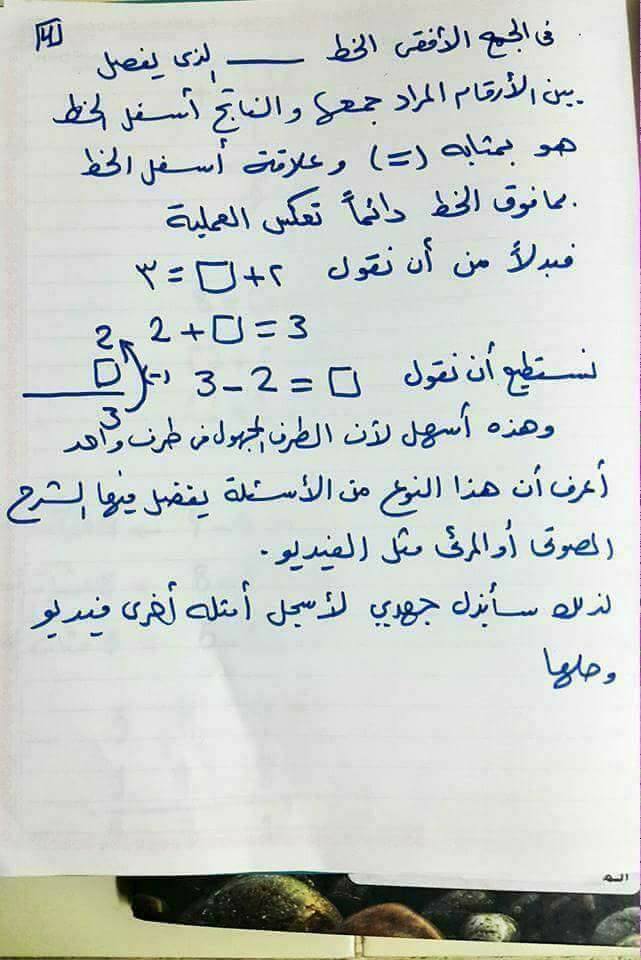 [4]
فى الجمع الأفقى الخط ____ الذى يفصل
بين الأرقام المراد جمعها والناتج أسفل الخط
هو بمثابه (=) وعلاقة أسفل الخط
بما فوق الخط دائماً تعكس العملية
فبدلاً من أن نقول ٢+□=٣
2+□=3
نستطيع أن نقول 3-2=□
2
□
(-)
3
وهذه أسهل لأن الطرف المجهول فى طرف واحد
أعرف أن هذا النوع من الأسئلة يفضل فيها الشرح
الصوتى أو المرئى مثل الفيديو.
لذلك سأبذل جهدي لأسجل أمثله أخرى فيديو
وحلها